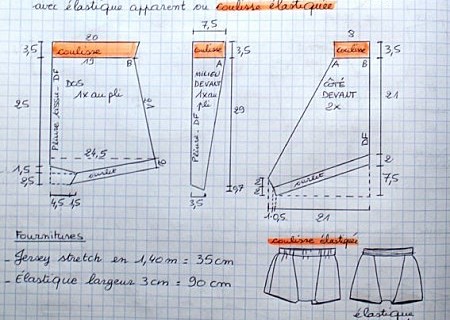 avec élastique apparent ou coulisse élastiquée
7,5
20
8
3,5
coulisse
coulisse
coulisse
3,5
3,5
19
B
A
A
B
DOS
1x au pli
MILIEU
DEVANT
1x au
pli
CÔTÉ
DEVANT
2x
Pliure tissu - DF
Pliure - DF
DF
25
29
21
24,5
2
1,5
2,5
ourlet
ourlet
0,7
7,5
4,5
1,5
3,5
1
0,5
21
Fournitures
- Jersey stretch en 1,40m = 35cm
- Élastique largeur 3cm = 90cm
coulisse élastiquée
élastique